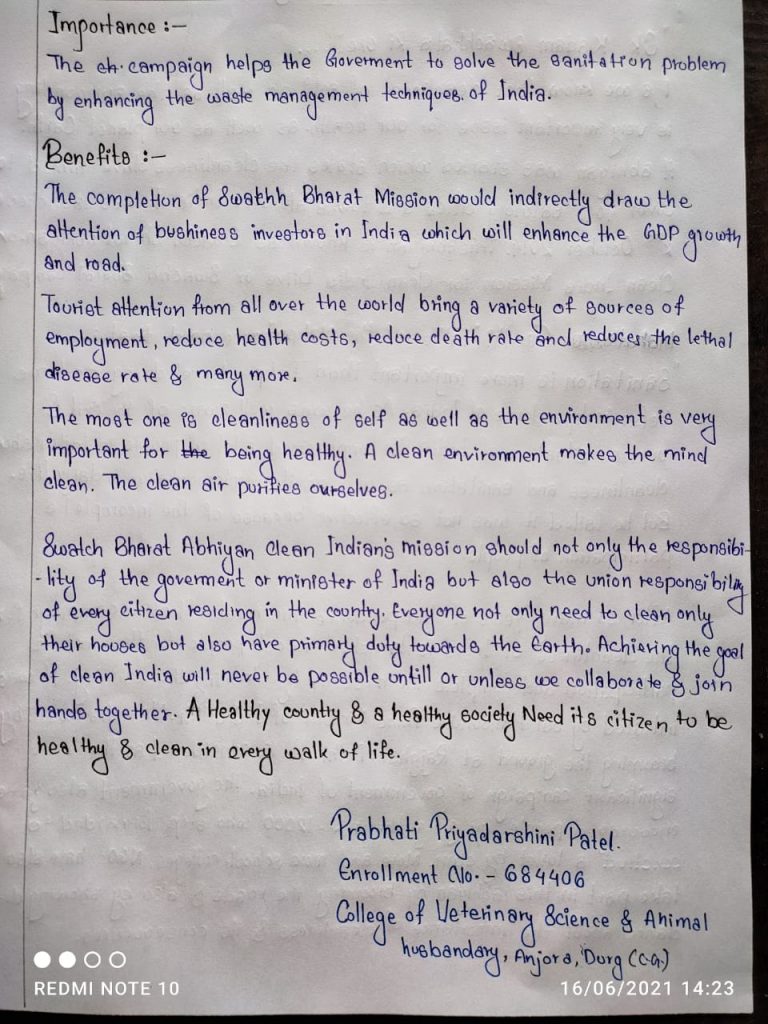 Importance :-
The ch. campaign helps the Goverment to solve the sanitation problem
by enhancing the waste management techniques. of India.
Benefits :-
The completion of Swathh Bharat Mission would indirectly draw the
attention of bushiness investors in India which will enhance the GDP growth
and road.
Tourist attention from all over the world bring a variety of sources of
employment, reduce health costs, reduce death rate and reduces the lethal
disease rate & many more.
The most one is cleanliness of self as well as the environment is very
important for the being healthy. A clean environment makes the mind
clean. The clean air purifies ourselves.
Swatch Bharat Abhiyan clean Indian's mission should not only the responsibi-
-lity of the goverment or minister of India but also the union responsibility
of every citizen residing in the country. Everyone not only need to clean only
their houses but also have primary duty towards the Earth. Achieving the goal
of clean India will never be possible untill or unless we collaborate & join
hands together. A Healthy country & a healthy society Need its citizen to be
healthy & clean in every walk of life.
Prabhati Priyadarshini Patel.
Enrollment No. - 684406
College of Veterinary Science & Animal
husbandary, Anjora, Durg (C.G.)
REDMI NOTE 10
16/06/2021 14:23